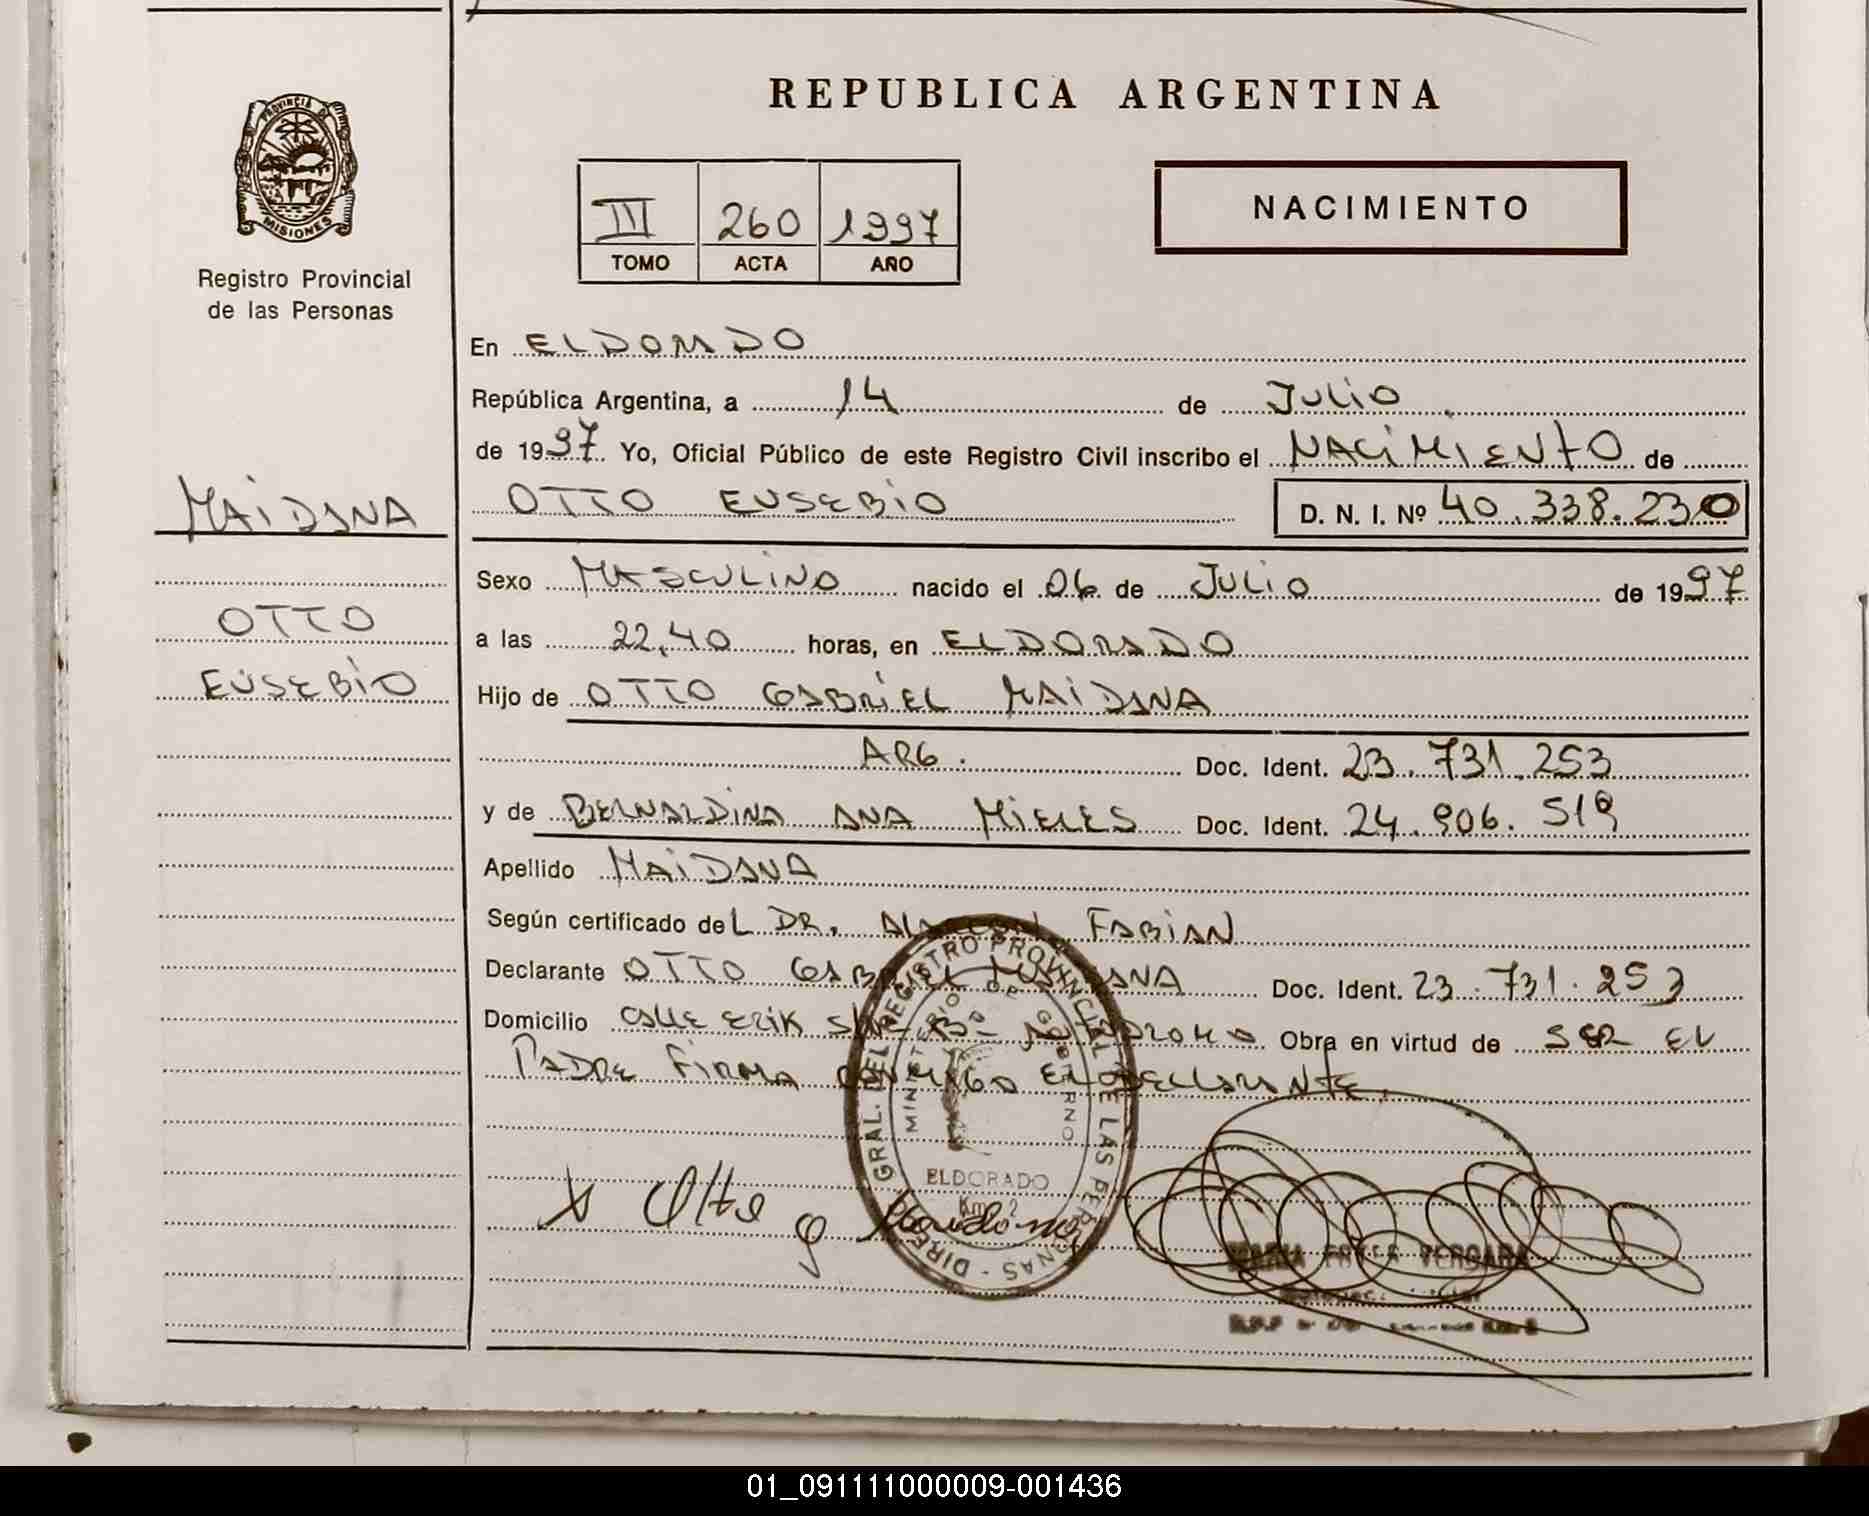 REPUBLICA ARGENTINA
PROVINCIA D MISIONES
Registro Provincial
de las Personas
III 260 1997
TOMO ACTA AÑO
NACIMIENTO
En ELDORADO
República Argentina, a 14 de JULIO
de 1997 Yo, Oficial Público de este Registro Civil inscribo el NACIMIENTO de
MAIDANA
OTTO EUSEBIO D. N. I. Nº 40.338.230
Sexo MASCULINO nacido el 06 de JULIO de 1997
OTTO
a las 22,40 horas, en ELDORADO
EUSEBIO
Hijo de OTTO GABRIEL MAIDANA
ARG. Doc. Ident. 23.731.253
y de BERNALDINA ANA MIELES Doc. Ident. 24.906.519
Apellido MAIDANA
Según certificado deL DR. FABIAN
Declarante OTTO GABRIEL MAIDANA Doc. Ident. 23.731.253
Domicilio CALLE ERIK Obra en virtud de SER EL
PADRE FIRMA CONMIGO EL DECLARANTE.
DIREC GRAL. DEL REGISTRO PROVINCIAL DE LAS PERSONAS
MINISTERIO DE GOBIERNO
ELDORADO
Km. 2
Otto G Maidana
VERGARA
01_091111000009-001436